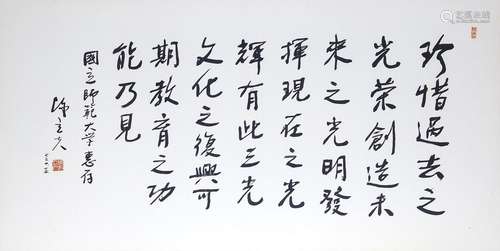 珍惜過去之
光榮創造未
來之光明發
揮現在之光
輝有此三光
文化之復興可
期教育之功
能乃見
國立師範大学惠存
陳立夫